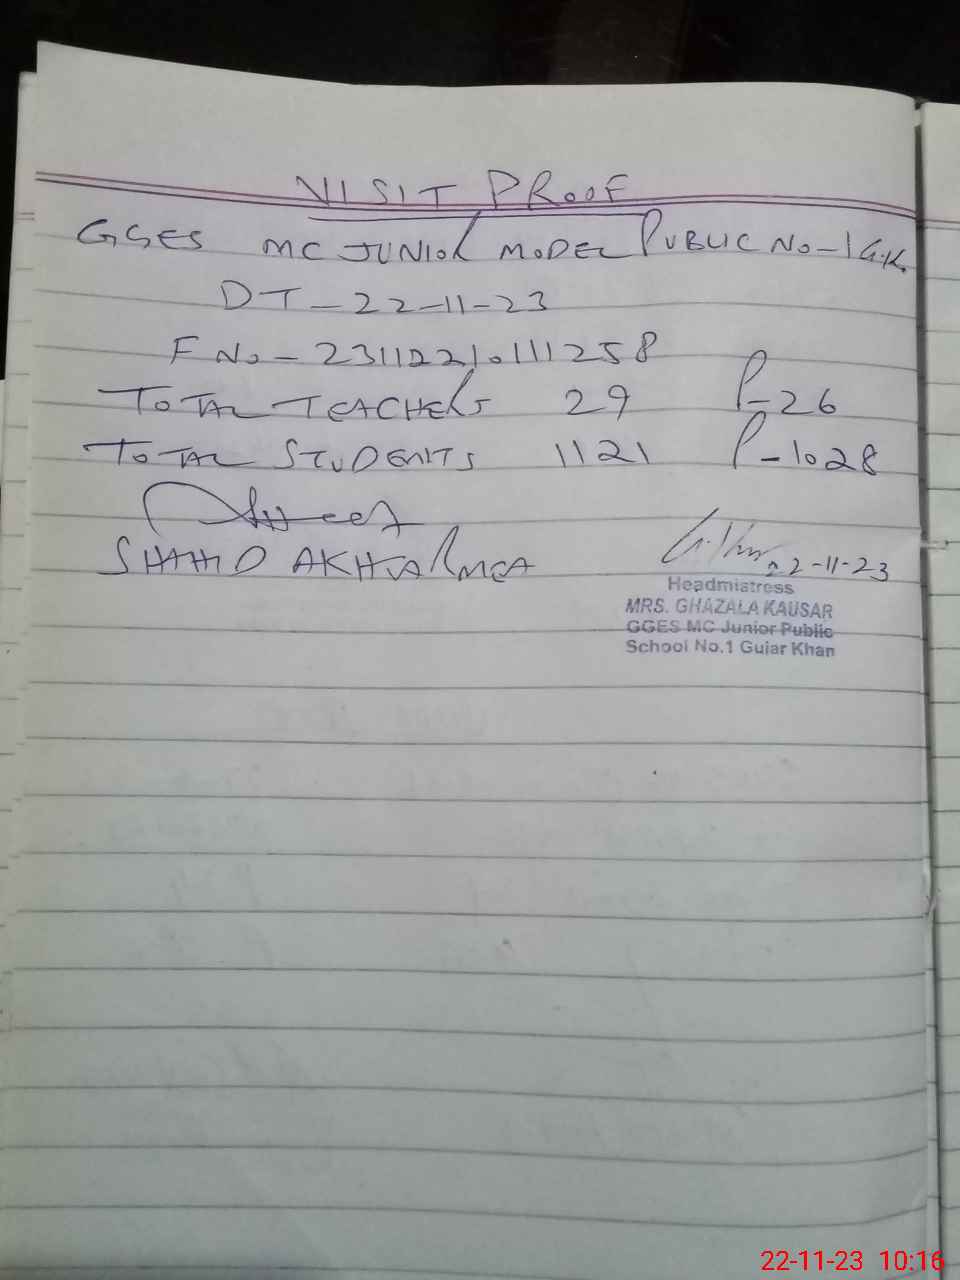 VISIT PROOF
GGES MC JUNIOR MODEL PUBLIC NO-1 G.K.
DT-22-11-23
F No-23112210111258
TOTAL TEACHERS 29 P-26
TOTAL STUDENTS 1121 P-1028
SHAHID AKHTAR MEA
22-11-23
Headmistress
MRS. GHAZALA KAUSAR
GGES MC Junior Public
School No.1 Gujar Khan
22-11-23 10:16